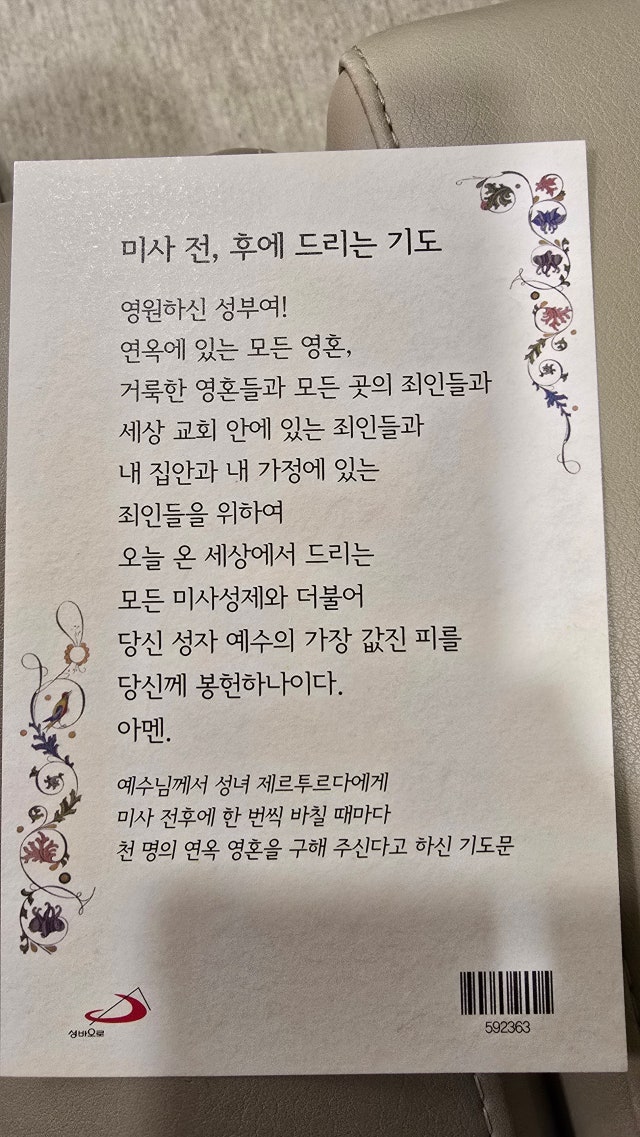 미사 전, 후에 드리는 기도
영원하신 성부여!
연옥에 있는 모든 영혼,
거룩한 영혼들과 모든 곳의 죄인들과
세상 교회 안에 있는 죄인들과
내 집안과 내 가정에 있는
죄인들을 위하여
오늘 온 세상에서 드리는
모든 미사성제와 더불어
당신 성자 예수의 가장 값진 피를
당신께 봉헌하나이다.
아멘.
예수님께서 성녀 제르투르다에게
미사 전후에 한 번씩 바칠 때마다
천 명의 연옥 영혼을 구해 주신다고 하신 기도문
성바오로
592363